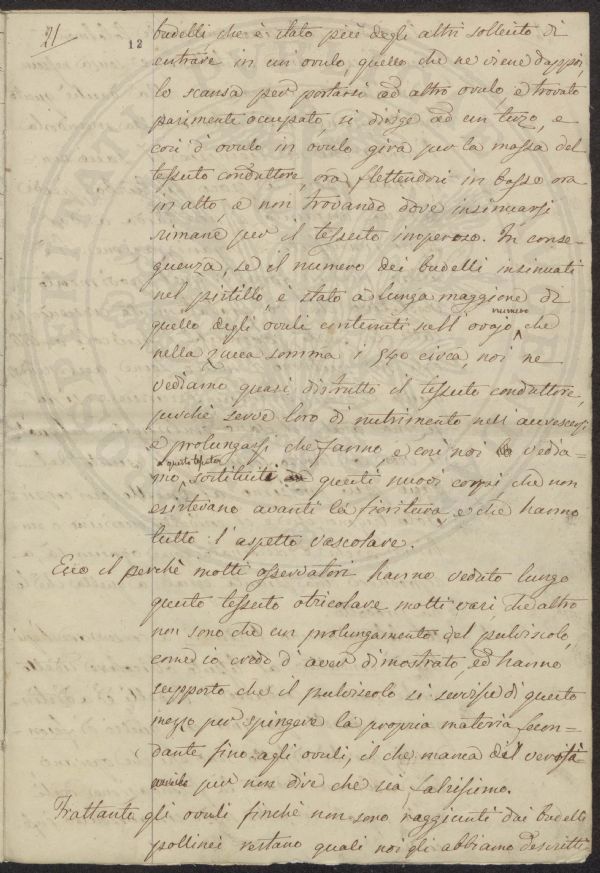 21
12
budelli che è stato più degli altri sollecito di
entrare in un ovulo, quello che ne viene dappoi,
lo scansa per portarsi ad altro ovulo, e trovato
parimente occupato, si dirige ad un terzo, e
così d'ovulo in ovulo gira per la massa del
tessuto conduttore, ora flettendosi in basso ora
in alto, e non trovando dove insinuarsi
rimane per il tessuto inoperoso. In conse-
guenza, se il numero dei budelli insinuati
nel pistillo, è stato a lunga maggiore di
quello degli ovuli contenuti nell'ovajo, numero che
nella zucca somma i 540 circa, noi ne
vediamo quasi distrutto il tessuto conduttore,
perchè serve loro di nutrimento nell'accrescersi
e prolungarsi che fanno, e così noi veddia-
mo, a questo tessuto sostituiti questi nuovi corpi che non
esistevano avanti la fioritura, e che hanno
tutto l'aspetto vascolare.
Ecco il perchè molti osservatori hanno veduto lungo
questo tessuto otricolare molti vasi, che altro
non sono che un prolungamento del pulviscolo,
come io credo d'aver dimostrato, ed hanno
supposto che il pulviscolo si servisse di questo
mezzo per spingere la propria materia fecon-
dante fino agli ovuli, il che manca di verità
per non dire che sia falsissimo.
Frattanto gli ovuli finchè non sono raggiunti dai budelli
pollinei restano quali noi gli abbiamo descritti